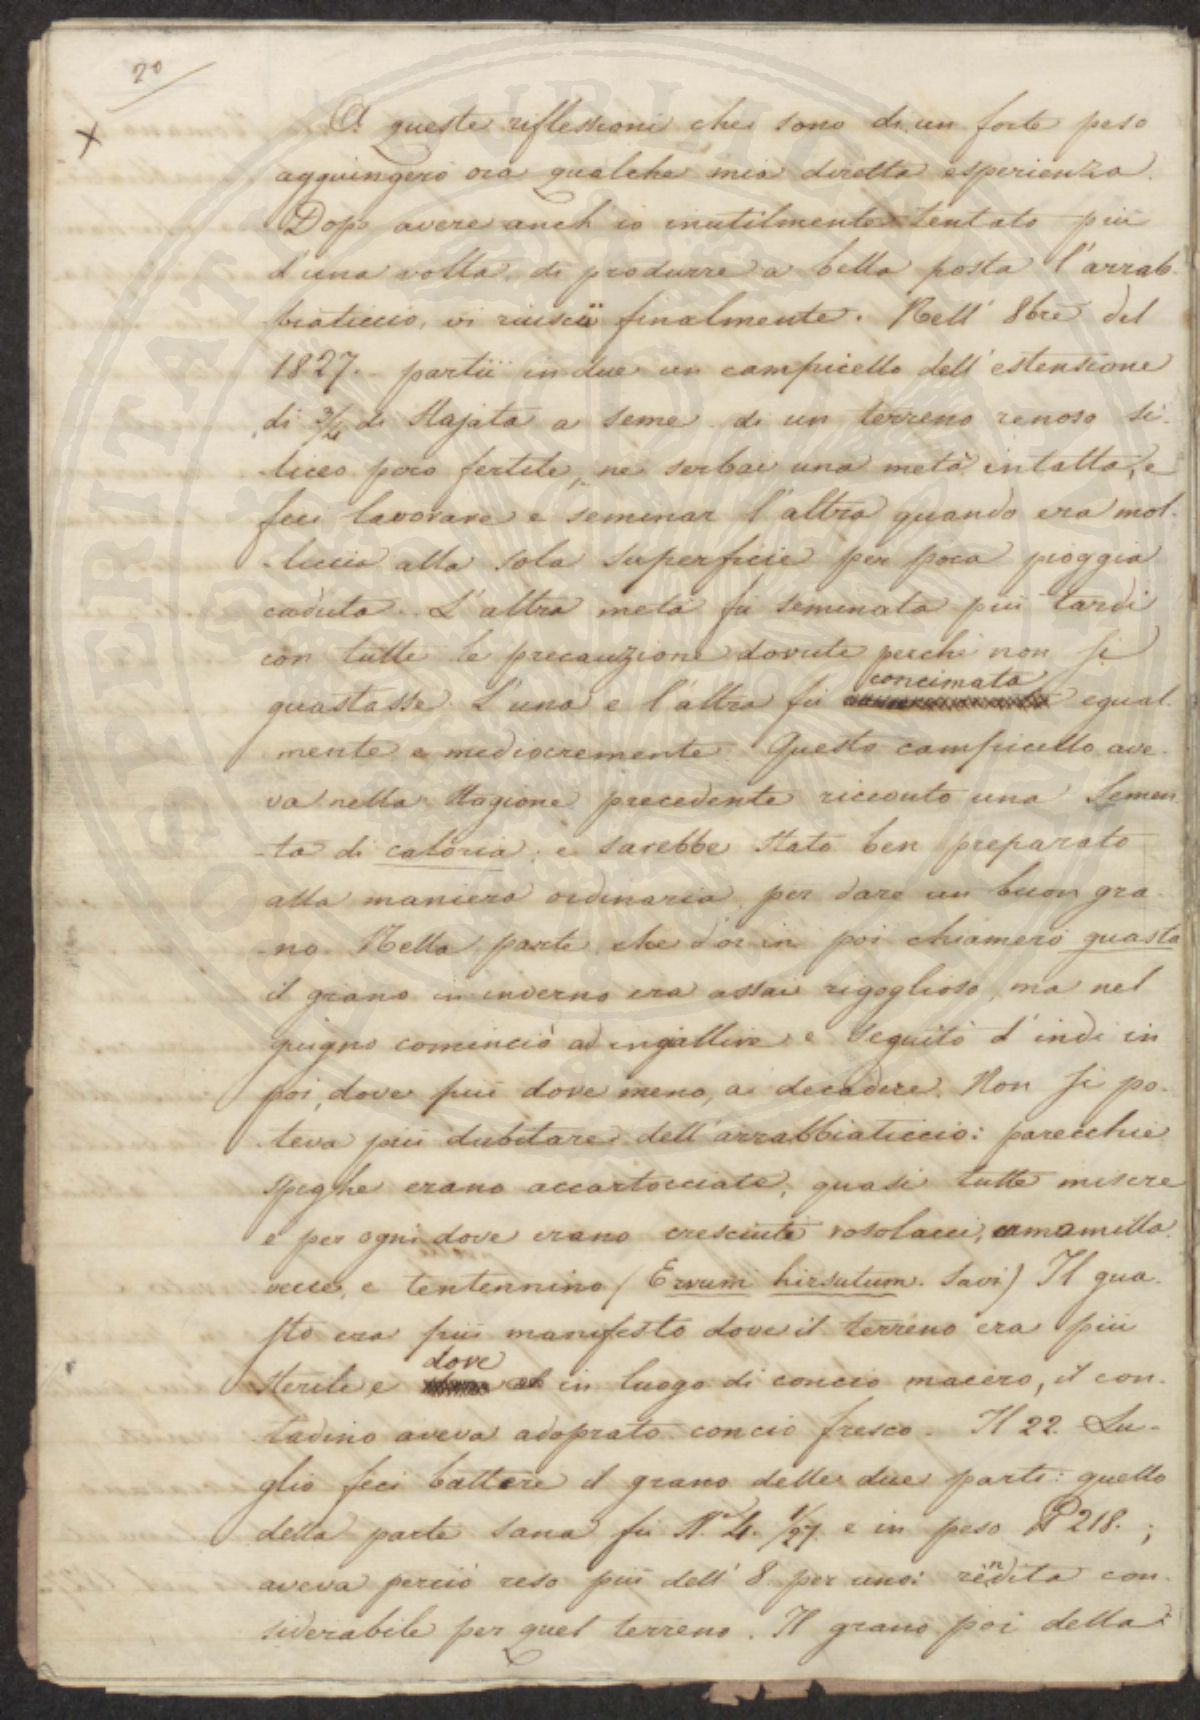 20
x
A queste riflessioni che sono di un forte peso
aggiungerò ora qualche mia diretta esperienza.
Dopo avere anch' io inutilmente tentato più
d'una volta di produrre a bella posta l'arrab-
biaticcio, vi riuscii finalmente. Nell' 8bre del
1827. partii in due un campicello dell' estensione
di 3/4 di Stajata a seme di un terreno renoso si-
liceo poco fertile, ne serbai una metà intatta, e
feci lavorare e seminar l'altra quando era mol-
-liccia alla sola superficie per poca pioggia
caduta. L'altra metà fu seminata più tardi
con tutte le precauzione dovute perchè non si
guastasse. L'una e l'altra fu concimata egual-
mente e mediocremente. Questo campicello ave-
va nella stagione precedente ricevuto una Semen-
-ta di caloria, e sarebbe stato ben preparato
alla maniera ordinaria per dare un buon gra-
-no. Nella parte che d'or in poi chiamerò guasta
il grano in inverno era assai rigoglioso, ma nel
giugno cominciò ad ingallire e seguitò d'indi in
poi, dove più dove meno, a decadere. Non si po-
teva più dubitare dell'arrabbiaticcio: parecchie
spighe erano accartocciate, quasi tutte misere
e per ogni dove erano cresciuti rosolacci, camomilla,
vecce, e tentennino (Ervum hirsutum. Savi) Il gua-
sto era più manifesto dove il terreno era più
sterile e dove in luogo di concio macero, il con-
tadino aveva adoprato concio fresco. Il 22. Lu-
glio feci battere il grano delle due parti: quello
della parte sana fu 4. 1/27 e in peso 218.;
aveva perciò reso più dell' 8 per uno: rendita con-
siderabile per quel terreno. Il grano poi della